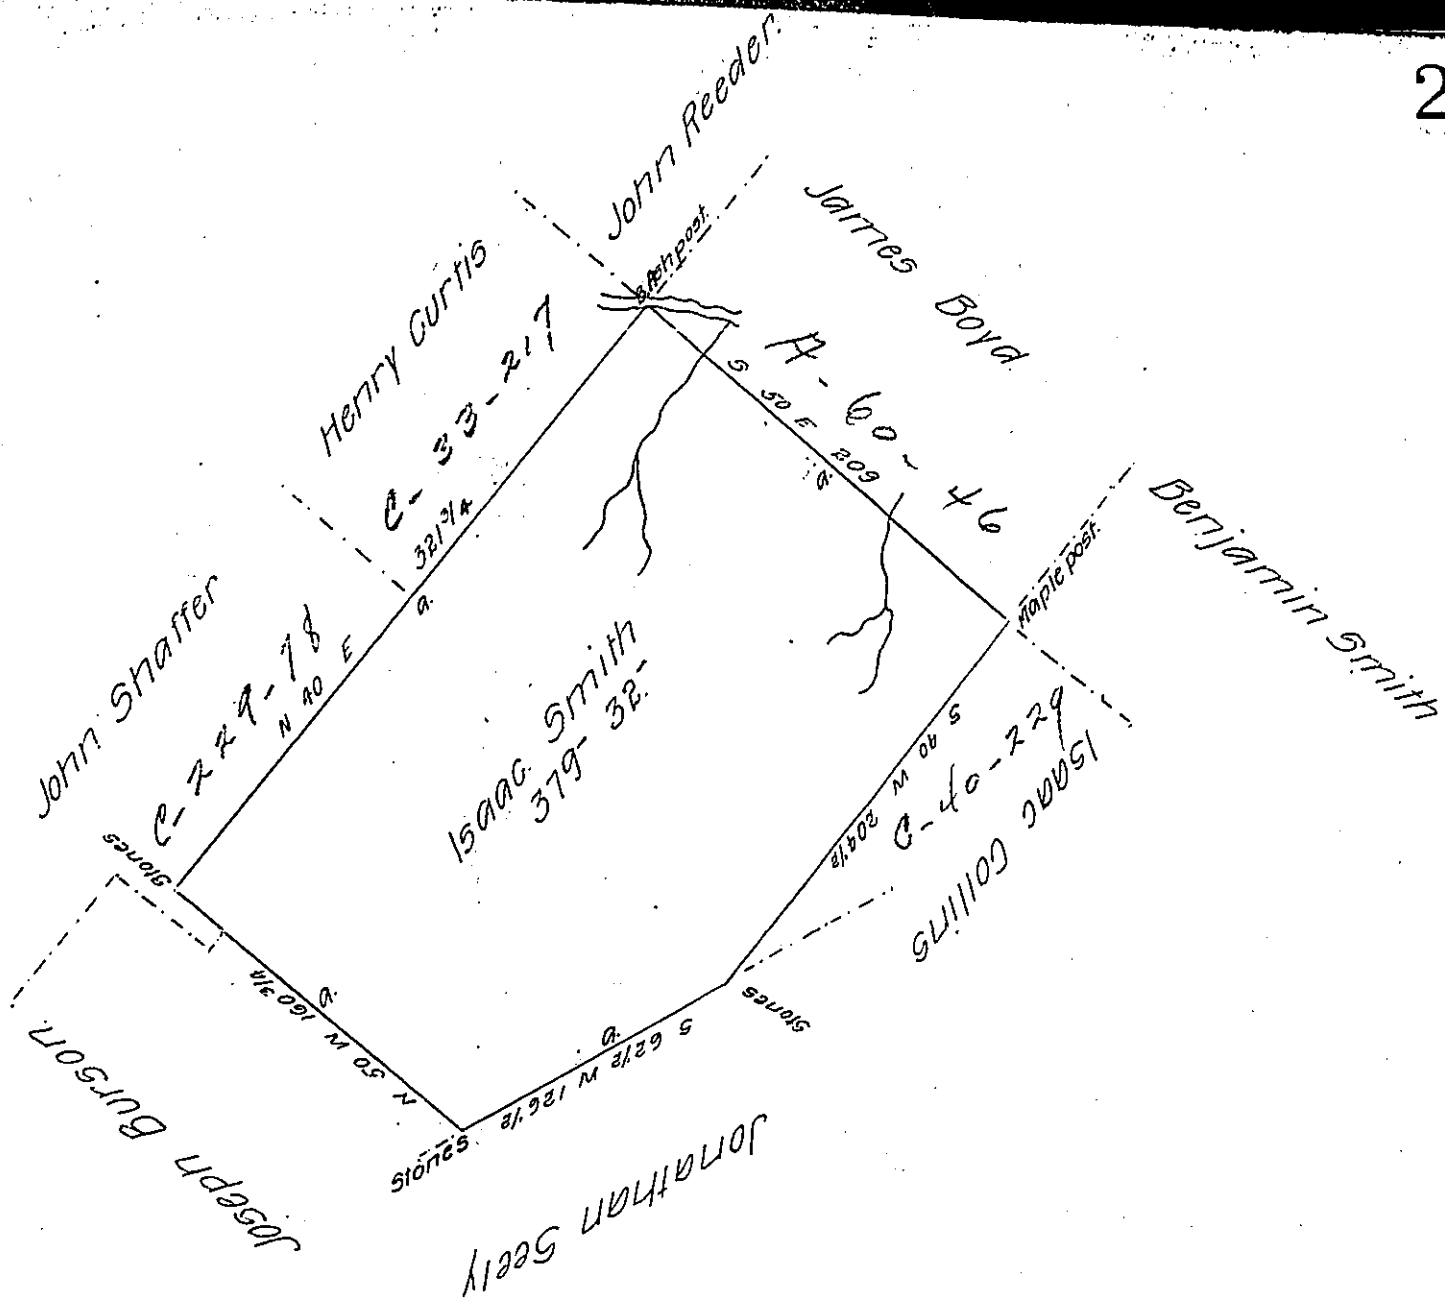 2
John Reeder.
James Boyd.
Henry Curtis
C-33-217
B. Ash post.
A-60-46
S 50 E 209
a.
Benjamin Smith
Maple post.
John Shaffer
C-229-78
N 40 E
321 3/4
a.
Isaac Smith
379-32-
S 40 W 204 1/2
C-40-229
Isaac Collins
Stones
Stones
N 50 W 160 3/4
a.
S 62 1/2 W 126 1/2
a.
Stones
Joseph Burson.
Jonathan Seely